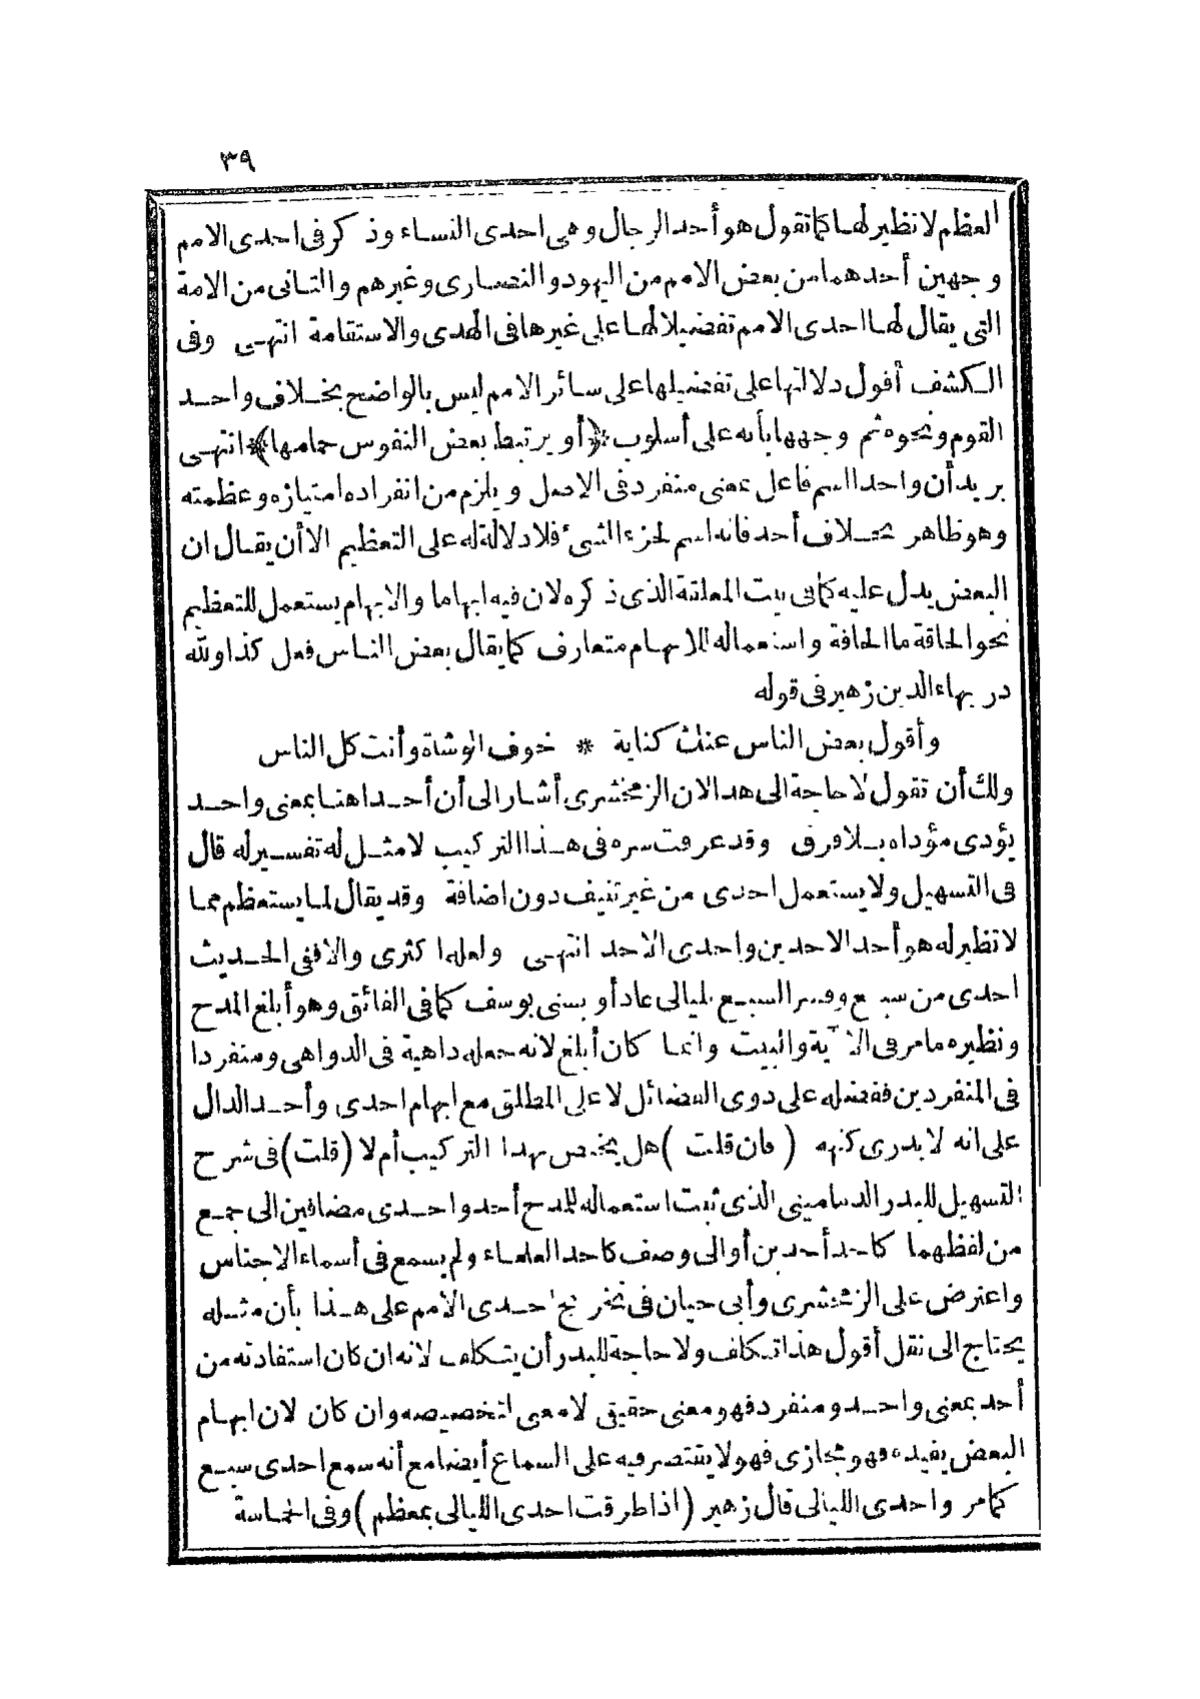 ٣٩
العظم لا نظير لها كما تقول هو أحد الرجال وهى احدى النساء وذكر فى احدى الامم
وجهين أحدهما من بعض الامم من اليهود والنصارى وغيرهم والثانى من الامة
التى يقال لها احدى الامم تفضيلا لها على غيرها فى الهدى والاستقامة انتهـى وفى
الكشف أقول دلالتها على تفضيلها على سائر الامم ليس بالواضح بخـلاف واحـد
القوم ونحوه ثم وجهها بأنه على أسلوب *(أو يرتبط بعض النفوس حمامها)* انتهـى
يريد أن واحدا اسم فاعل بمعنى منفرد فى الاصل ويلزم من انفراده امتيازه وعظمته
وهو ظاهر بخـلاف أحد فانه اسم لجزء الشئ فلا دلالة له على التعظيم الا أن يقـال ان
البعض يدل عليه كما فى بيت المعلقة الذى ذكره لان فيه ابهاما والابهام يستعمل للتعظيم
نحو الحاقة ما الحاقة واستعماله للابهام متعارف كما يقال بعض النـاس فعل كذا ولله
در بهاء الدين زهير فى قوله
وأقول بعض الناس عنك كناية * خوف الوشاة وأنت كل الناس
ولك أن تقول لا حاجة الى هذا لان الزمخشرى أشار الى أن أحـدا هنا بمعنى واحـد
يؤدى مؤداه بـلا فرق وقد عرفت سره فى هـذا التركيب لا مثـل له تفسـير له قال
فى التسهيل ولا يستعمل احدى من غير تنيف دون اضافة وقد يقال لمـا يستعظم ممـا
لا نظير له هو أحد الاحدين واحدى الاحد انتهـى ولعله اكثرى والا ففى الحـديث
احدى من سبع وفسر السبـع بليالى عاد أو بسنى يوسف كما فى الفائق وهو أبلغ المدح
ونظيره ما مر فى الآية والبيت وانمـا كان أبلغ لانه جعله داهية فى الدواهى ومنفردا
فى المنفردين ففضله على ذوى الفضائل لا على المطلق مع ابهام احدى وأحـد الدال
على انه لا يدرى كنهه (فان قلت) هل يختص بهذا التركيب أم لا (قلت) فى شرح
التسهيل للبدر الدمامينى الذى ثبت استعماله للمدح أحد واحـدى مضافين الى جمـع
من لفظهما كاحـد أحدين أو الى وصف كاحد العلمـاء ولم يسمع فى أسماء الاجناس
واعترض على الزمخشرى وأبى حيان فى تخريج احـدى الامم على هـذا بأن مثـله
يحتاج الى نقل أقول هذا تـكلف ولا حاجة للبدر أن يتـكلف لانه ان كان استفادته من
أحد بمعنى واحـد ومنفرد فهو معنى حقيقى لا معنى لتخصيصه وان كان لان ابهـام
البعض يفيده فهو مجازى فهو لا يقتصر فيه على السماع أيضا مع أنه سمع احدى سبـع
كما مر واحدى الليالى قال زهير (اذا طرقت احدى الليالى بمعظم) وفى الحماسة